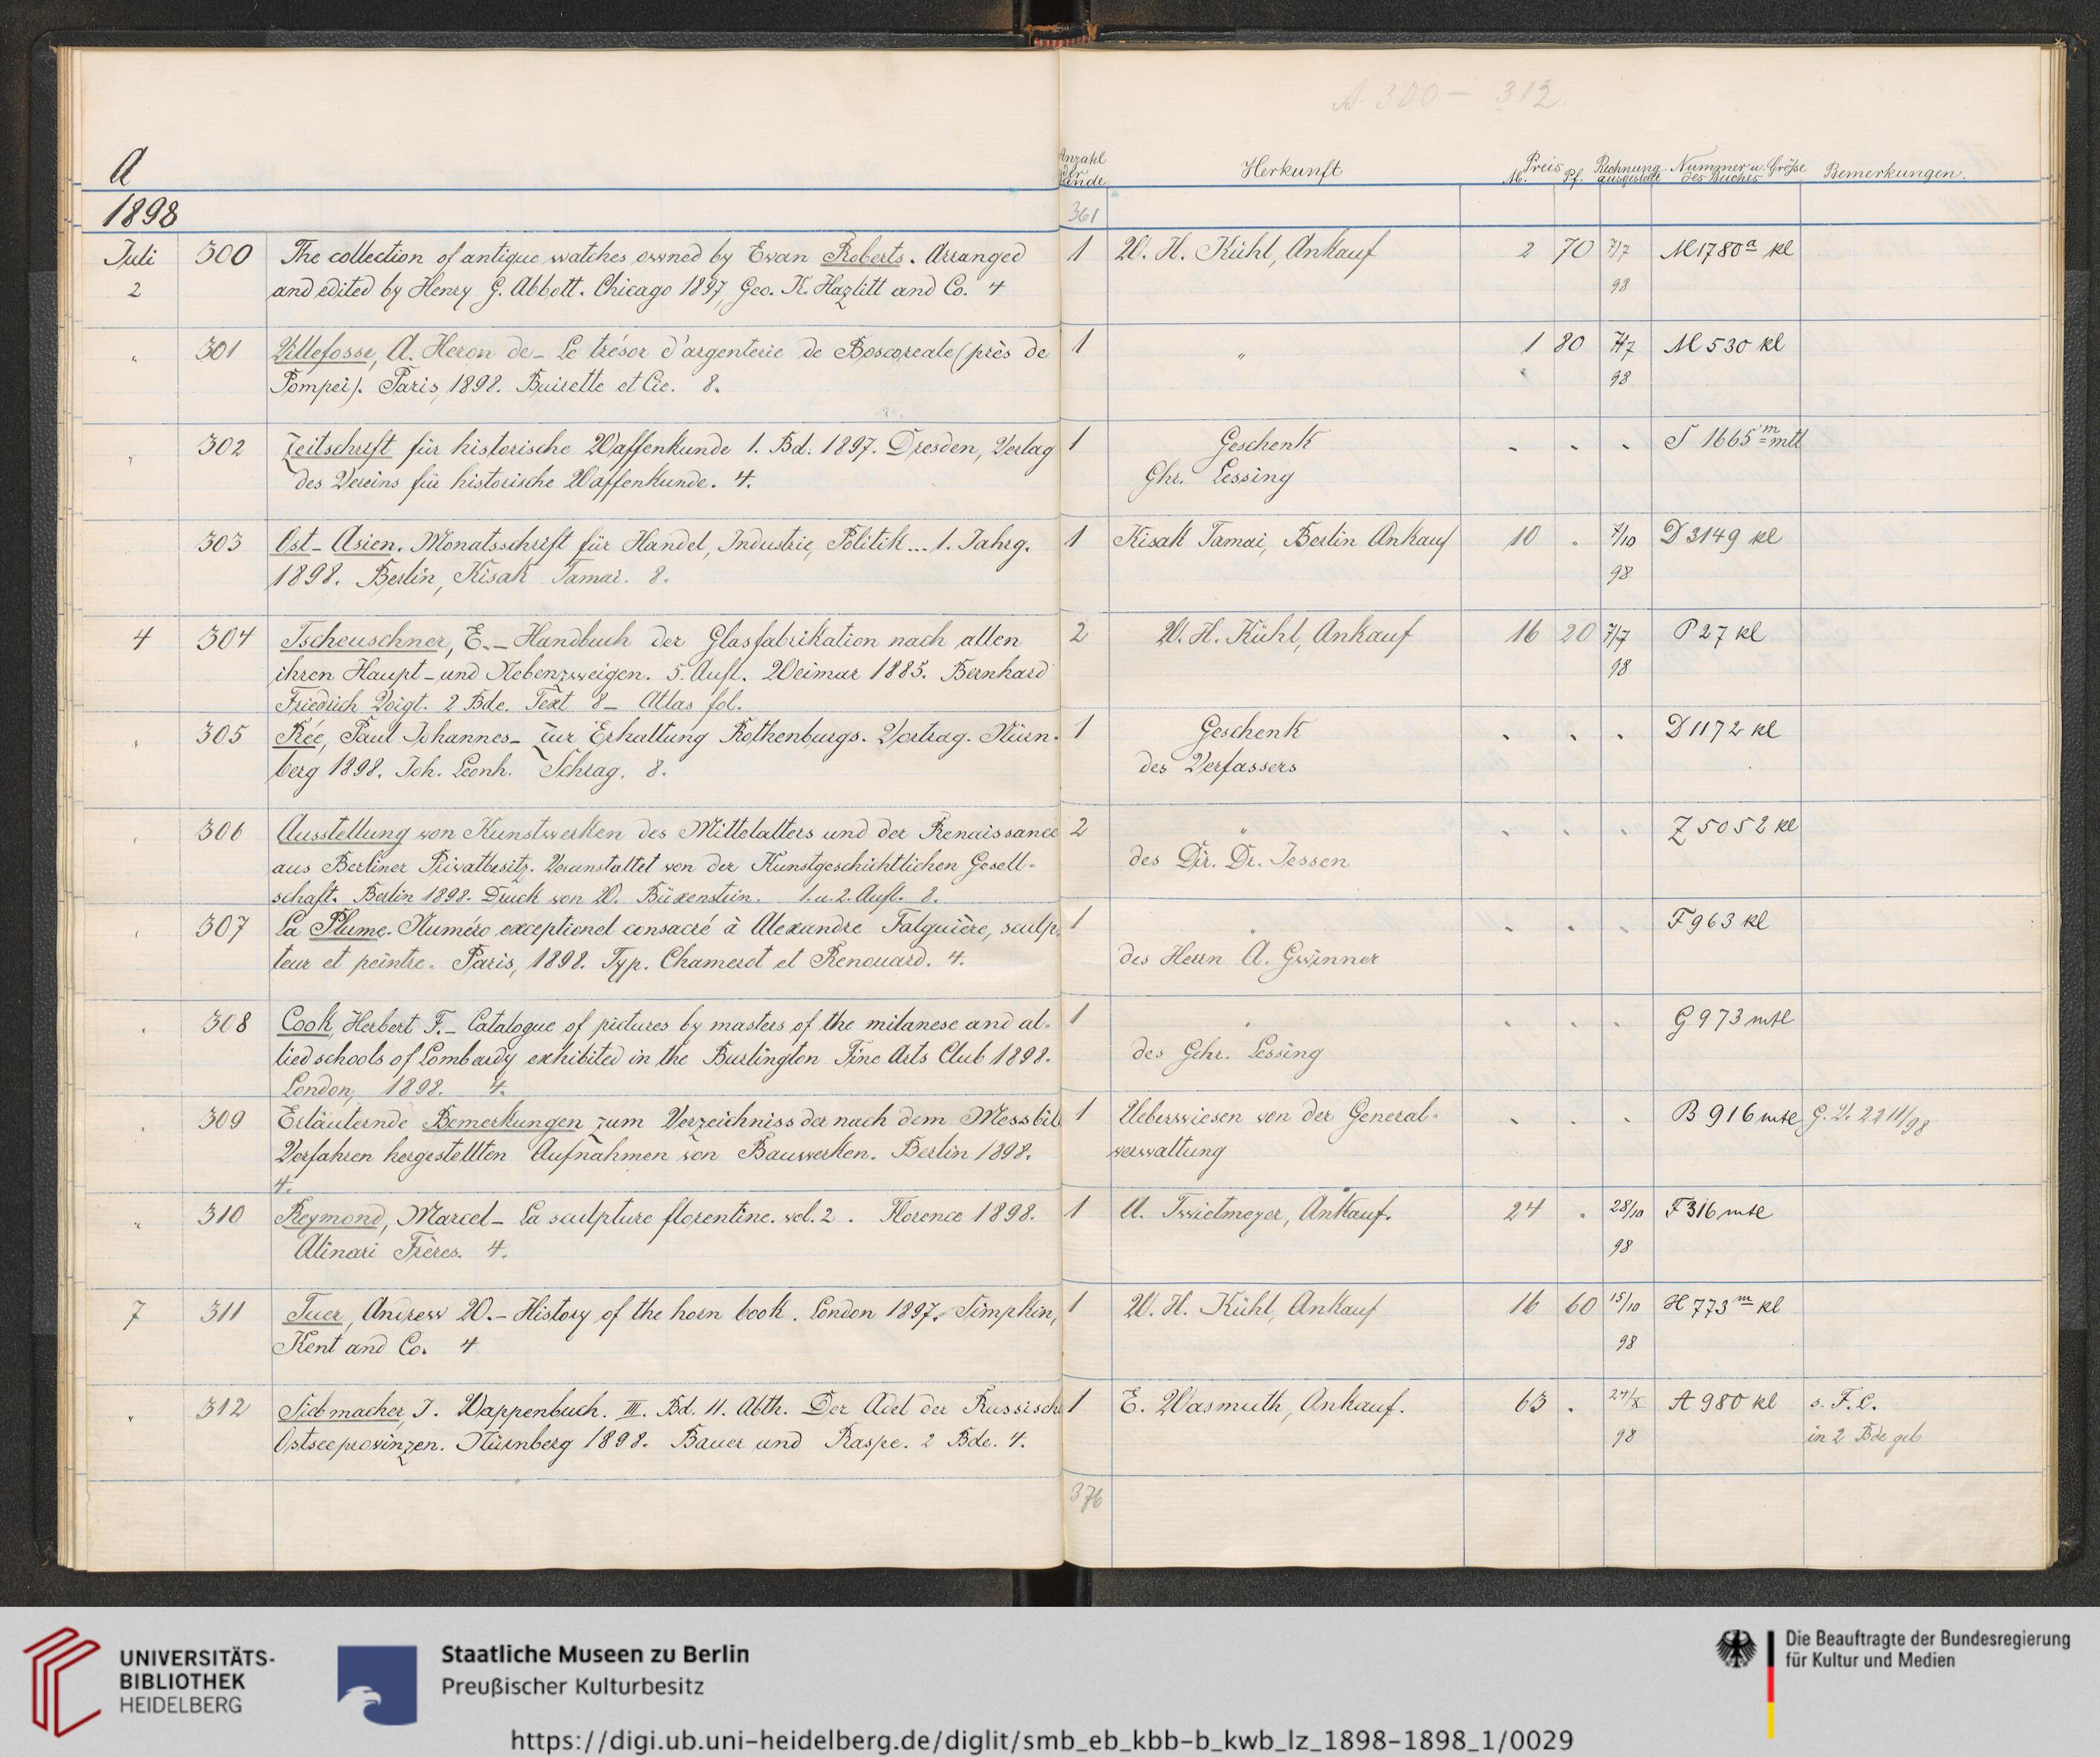 A. 300 – 312.
A
Anzahl der Bände
Herkunft
Preis M. Pf.
Rechnung ausgestellt
Nummer u. Größe des Buches
Bemerkungen.
1898
361
Juli 300 The collection of antique watches owned by Evan Roberts. Arranged 1 W. H. Kühl, Ankauf 2 70 7/7 M 1780a kl
2 and edited by Henry G. Abbott. Chicago 1897, Geo. K. Hazlitt and Co. 4 98
" 301 Villefosse, A. Heron de – Le trésor d'argenterie de Boscoreale (près de 1 " 1 80 7/7 M 530 kl
Pompei). Paris, 1898. Buisette et Cie. 8. 98
" 302 Zeitschrift für historische Waffenkunde 1. Bd. 1897. Dresden, Verlag 1 Geschenk . . . S 1665m mtl
des Vereins für historische Waffenkunde. 4. Ghr. Lessing
303 Ost-Asien. Monatsschrift für Handel, Industrie, Politik... 1. Jahrg. 1 Kisak Tamai, Berlin Ankauf 10 . 7/10 D 3149 kl
1898. Berlin, Kisak Tamai. 8. 98
4 304 Tscheuschner, E. – Handbuch der Glasfabrikation nach allen 2 W. H. Kühl, Ankauf 16 20 7/7 P 27 kl
ihren Haupt- und Nebenzweigen. 5. Aufl. Weimar 1885. Bernhard 98
Friedrich Voigt. 2 Bde. Text 8 – Atlas fol.
" 305 Rée, Paul Johannes – Zur Erhaltung Rothenburgs. Vortrag. Nürn- 1 Geschenk . . . D 1172 kl
berg 1898. Joh. Leonh. Schrag. 8. des Verfassers
" 306 Ausstellung von Kunstwerken des Mittelalters und der Renaissance 2 " . . . Z 5052 kl
aus Berliner Privatbesitz. Veranstaltet von der Kunstgeschichtlichen Gesell- des Dir. Dr. Jessen
schaft. Berlin 1898. Druck von W. Büxenstein. 1. u. 2. Aufl. 8.
" 307 La Plume. Numéro exceptionel consacré à Alexandre Falguière, sculp- 1 " . . . F 963 kl
teur et peintre. Paris, 1898. Typ. Chamerot et Renouard. 4. des Herrn A. Gwinner
" 308 Cook, Herbert F. – Catalogue of pictures by masters of the milanese and al- 1 " . . . G 973 mtl
lied schools of Lombardy exhibited in the Burlington Fine Arts Club 1898. des Gehr. Lessing
London, 1898. 4.
" 309 Erläuternde Bemerkungen zum Verzeichniss der nach dem Messbild 1 Ueberwiesen von der General- . . . B 916 mtl G. V. 22 11/98
Verfahren hergestellten Aufnahmen von Bauwerken. Berlin 1898. verwaltung
4.
" 310 Reymond, Marcel – La sculpture florentine. vol. 2. Florence 1898. 1 A. Twietmeyer, Ankauf. 24 . 28/10 F 316 mtl
Alinari Frères. 4. 98
7 311 Tuer, Andrew W. – History of the horn book. London 1897. Simpkin, 1 W. H. Kühl, Ankauf 16 60 15/10 H 773m kl
Kent and Co. 4 98
" 312 Siebmacher, J. Wappenbuch. III. Bd. 11. Abth. Der Adel der Russisch 1 E. Wasmuth, Ankauf. 63 . 24/X A 980 kl s. F. C.
Ostseeprovinzen. Nürnberg 1898. Bauer und Raspe. 2 Bde. 4. 98 in 2 Bde geb
376
UNIVERSITÄTS-
BIBLIOTHEK
HEIDELBERG
Staatliche Museen zu Berlin
Preußischer Kulturbesitz
Die Beauftragte der Bundesregierung
für Kultur und Medien
https://digi.ub.uni-heidelberg.de/diglit/smb_eb_kbb-b_kwb_lz_1898-1898_1/0029